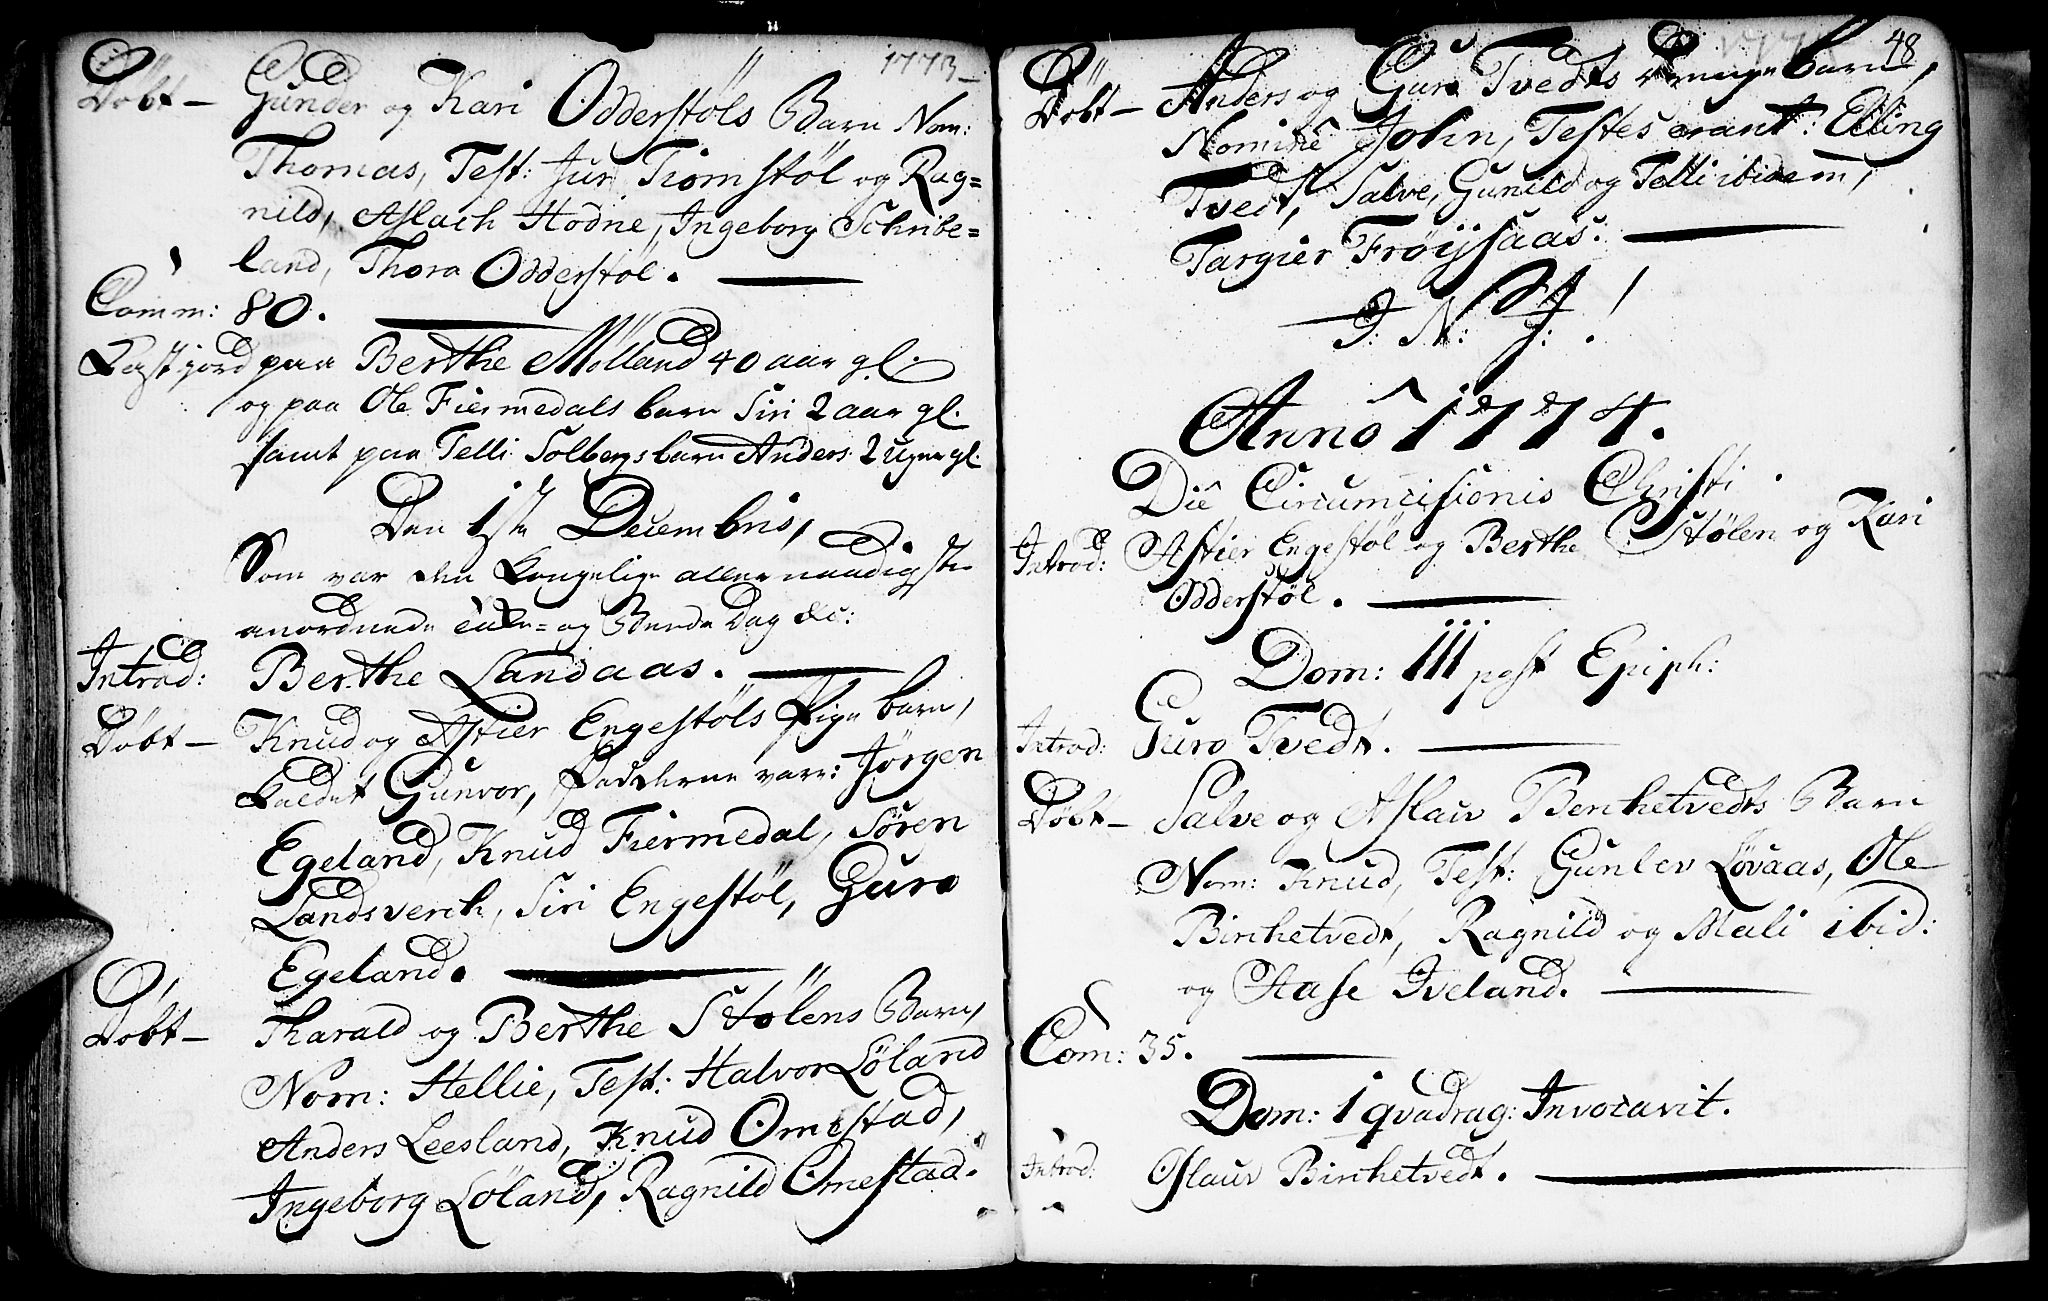 1773
Döbt — Gunder og Kari Odderstöls Barn Nom:
Thomas, Test: Jur Tiomstöl og Rag=
nild, Aslach Hodne, Ingeborg Schribe=
land, Thora Odderstöl.
Comm: 80.
Kast jord paa Berthe Mölland 40 aar gl.
og paa Ole Fiermedals barn Siri 2 aar gl.
samt paa Telli Solbergs barn Anders 2 uger gl.
Den 1ste Decembris,
Som var den Kongelige allernaadigste
anordnede Takke= og Beede Dag &c:
Introd: Berthe Landaas.
Döbt — Knud og Astier Engestöls Pige barn,
kaldet Gunvor, Fadderne vare: Jörgen
Egeland, Knud Fiermedal, Sören
Landsverch, Siri Engestöl, Guro
Egeland.
Döbt — Tharald og Berthe Stölens Barn,
Nom: Hellie, Test: Halvor Löland
Anders Leesland, Knud Omestad,
Ingeborg Löland, Ragnild Omestad.
48
Döbt — Anders og Guro Tvedts Drenge barn,
Nomine John, Testes erant: Elling
Tvedt, Salve, Gunild og Telli ibidem,
Targier Fröyssaas.
J: N: J:
Anno 1774.
Die Circumcisionis Christi
Introd: Astier Engestöl og Berthe Stölen og Kari
Odderstöl.
Dom: III post Epiph:
Introd: Guro Tvedt.
Döbt — Salve og Aslauv Berchetvedts Barn
Nom: Knud, Test: Gunlev Lövaas, Ole
Birchetvedt, Ragnild og Mali ibid:
og Aase Iveland.
Com: 35.
Dom: 1 qvadrag: Invocavit.
Introd: Oslauv Birchetvedt.